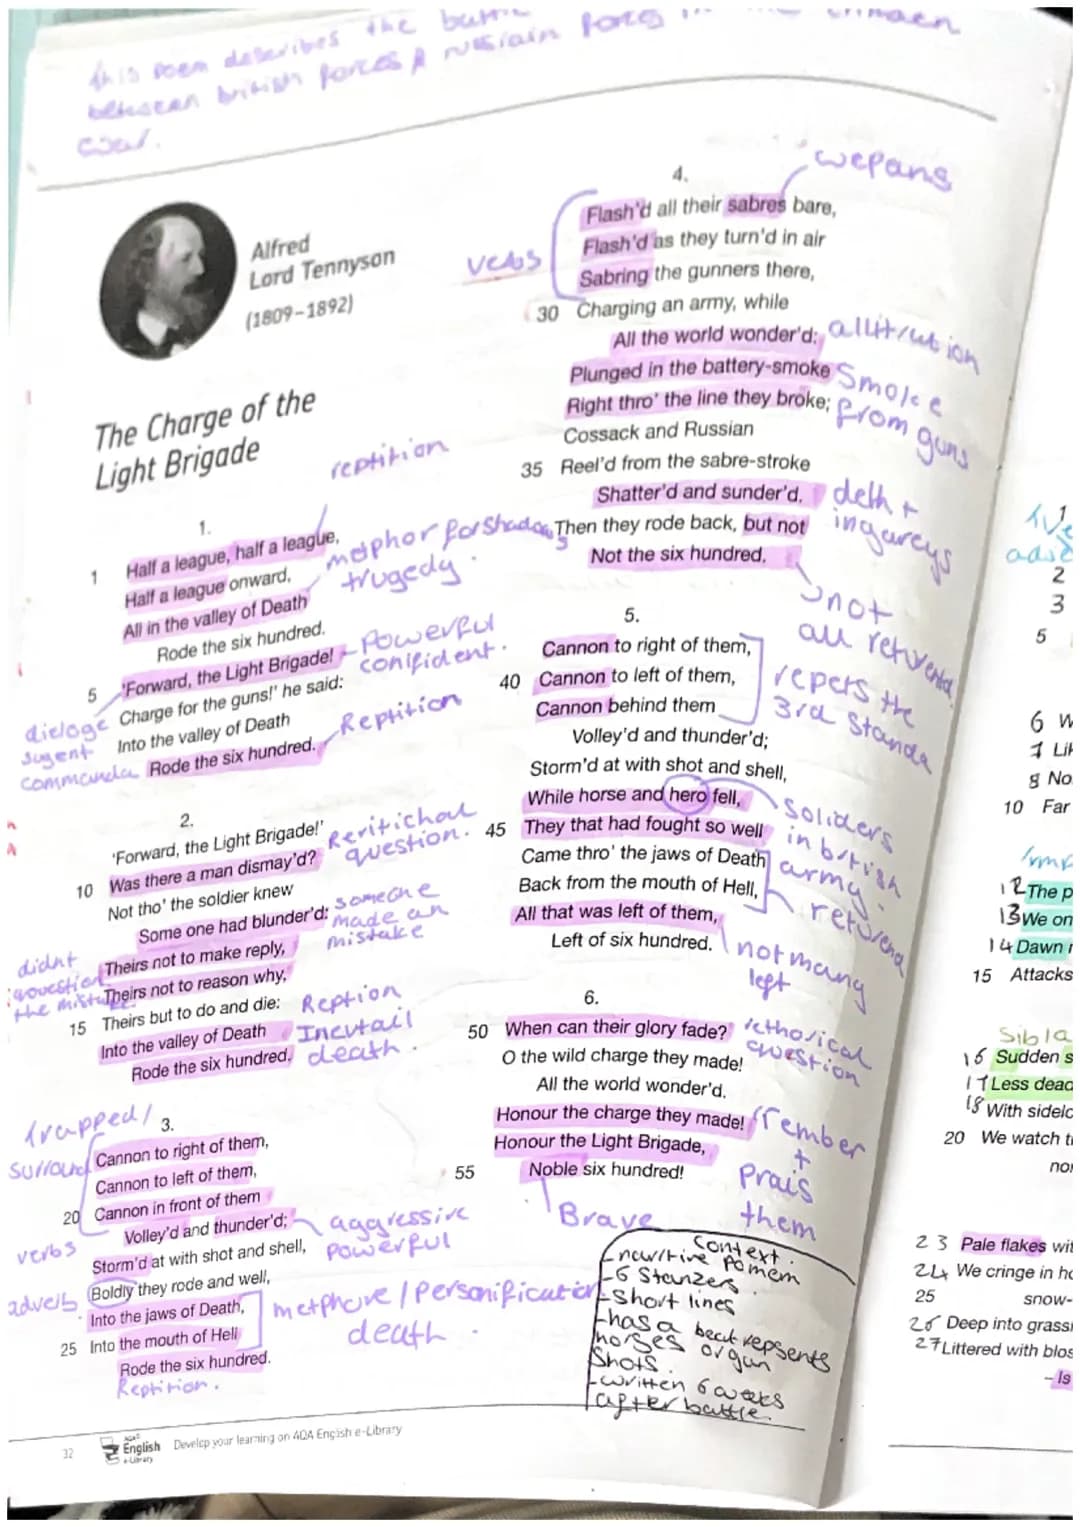 this poem describes the battle
between british forces & russiain forces in the crimaen
war.
Alfred
Lord Tennyson
(1809–1892)
The Charge of the
Light Brigade
reptition
1.
1 Half a league, half a league,
Half a league onward,
All in the valley of Death
Rode the six hundred.
5 'Forward, the Light Brigade!
Charge for the guns!' he said:
Into the valley of Death
Rode the six hundred.
metphor forshadows
trugedy.
Powerful
confident.
Reptition
dieloge
sugent
commanda
2.
'Forward, the Light Brigade!'
10 Was there a man dismay'd?
Not tho' the soldier knew
Some one had blunder'd:
Theirs not to make reply,
Theirs not to reason why,
15 Theirs but to do and die:
Into the valley of Death
Rode the six hundred.
Reritichal
question.
someone
made an
mistake
didnt
question
the mistake
Reption
Inevtail
death.
trapped/
surround
3.
Cannon to right of them,
Cannon to left of them,
20 Cannon in front of them
Volley'd and thunder'd;
Storm'd at with shot and shell,
Boldly they rode and well,
Into the jaws of Death,
25 Into the mouth of Hell
Rode the six hundred.
Reptition.
verbs
adverb
aggressive
powerful
metphore / Personification
death.
32
AQA
English
e-Library
Develop your learning on AQA English e-Library
wepans
4.
Flash'd all their sabres bare,
Flash'd as they turn'd in air
Sabring the gunners there,
30 Charging an army, while
All the world wonder'd:
Plunged in the battery-smoke
Right thro' the line they broke;
Cossack and Russian
35 Reel'd from the sabre-stroke
Shatter'd and sunder'd.
Then they rode back, but not
Not the six hundred.
verbs
allitration
Smoke
from guns
deth +
ingureys
not
all returend
5.
Cannon to right of them,
40 Cannon to left of them,
Cannon behind them
Volley'd and thunder'd;
Storm'd at with shot and shell,
While horse and hero fell,
45 They that had fought so well
Came thro' the jaws of Death
Back from the mouth of Hell,
All that was left of them,
Left of six hundred.
repers the
3rd Standa
Soliders
in british
army.
returend
not many
left
6.
50 When can their glory fade?
O the wild charge they made!
All the world wonder'd.
Honour the charge they made!
Honour the Light Brigade,
55 Noble six hundred!
rethorical
question
rember
+
prais
them
Brave
Context.
- newritive pomem
- 6 Stanzers.
- short lines
- has a beat repsents
horses or gun
shots.
- written 6 weeks
after battle.
1
2
3
5
6 W
7 Lik
8 No
10 Far
12 The p
13 We on
14 Dawn
15 Attacks
Sibla
16 Sudden s
17 Less dead
18 With sidelo
20 We watch t
23 Pale flakes wit
24 We cringe in ho
25 snow-
26 Deep into grass
27 Littered with blos
– Is